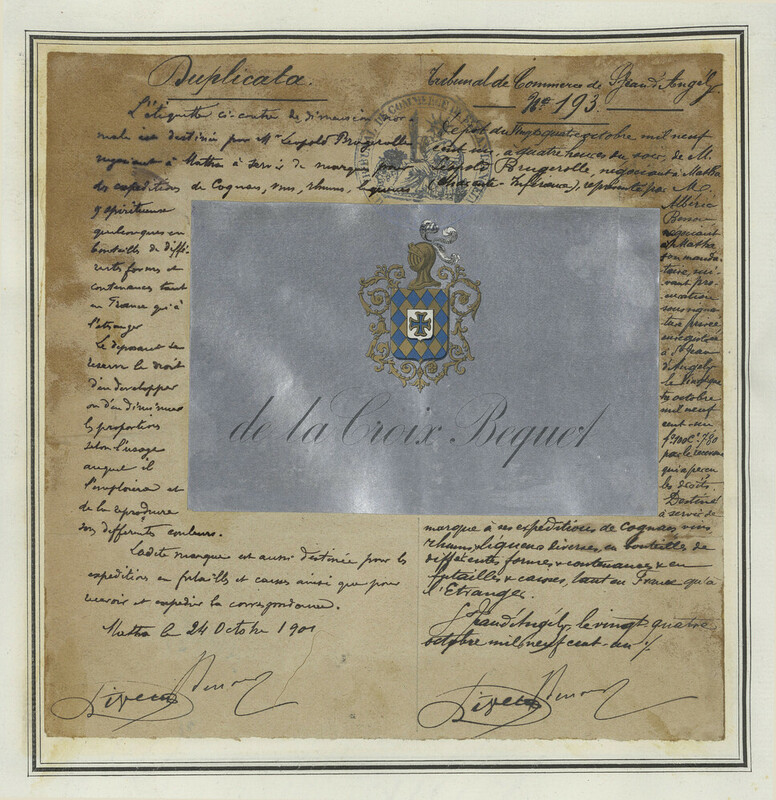 Duplicata.
L'étiquette ci-contre de dimension nor-
male est destinée par Mr Léopold Brugerolle
négociant à Matha à servir de marque pour
des expéditions de Cognac, vins, rhums, liqueurs
& spiritueux
quelconques en
bouteilles de diffé-
rentes formes et
contenances tant
en France qu'à
l'étranger
Le déposant se
réserve le droit
d'en développer
ou d'en diminuer
les proportions
selon l'usage
auquel il
l'emploiera et
de la reproduire
en différentes couleurs.
Ladite marque est aussi destinée pour les
expéditions en futailles et caisses ainsi que pour
recevoir et expédier la correspondance.
Matha le 24 Octobre 1901
Tribunal de Commerce de St Jean d'Angély
No 193.
Dépôt du Vingt quatre octobre mil neuf
cent un, à quatre heures du soir, de M.
Léopold Brugerolle, négociant à Matha
(Charente-Inférieure), représenté par M.
Albéric
négociant
à Matha
son manda-
taire, sui-
vant pro-
curation
sous signa-
ture privée
enregistrée
à St Jean
d'Angély
le Vingt
octobre
mil neuf
cent un
par le receveur
qui a perçu
les droits.
Destiné
à servir de
marque à ses expéditions de Cognacs, vins
rhums & Liqueurs diverses, en bouteilles de
différentes formes & contenances & en
futailles & caisses, tant en France qu'à
l'Etranger.
St Jean d'Angély, le vingt quatre
octobre mil neuf cent un
de la Croix Bequet